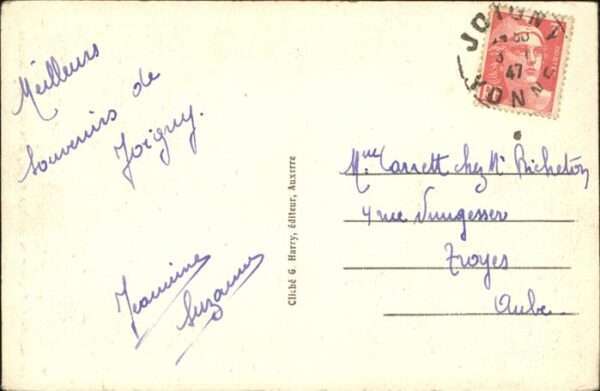 Meilleurs
souvenirs de
Joigny.
Jeannine
Suzanne
Cliché G. Harry, éditeur, Auxerre
JOIGNY
47
YONNE
Mme chez Mr Richeton
4 rue Nungesser
Troyes
Aube.